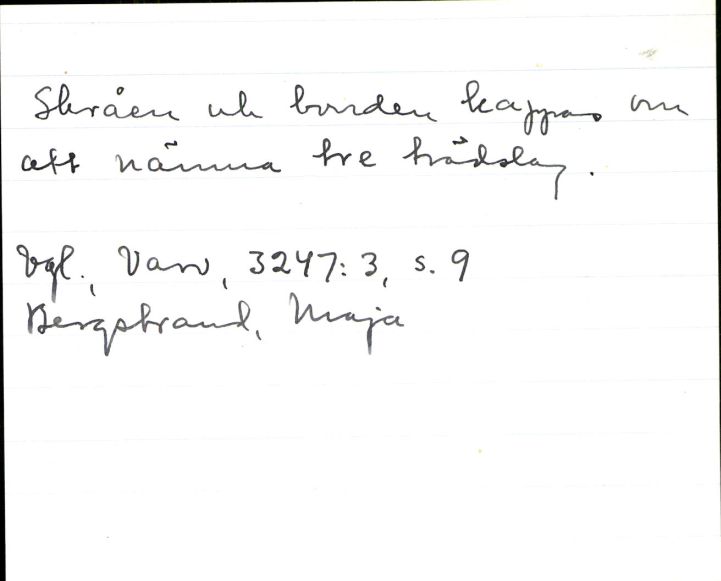 Skråen och bonden kappas om
att nämna tre trädslag.
Vgl., Varv, 3247:3, s. 9
Bergstrand, Maja